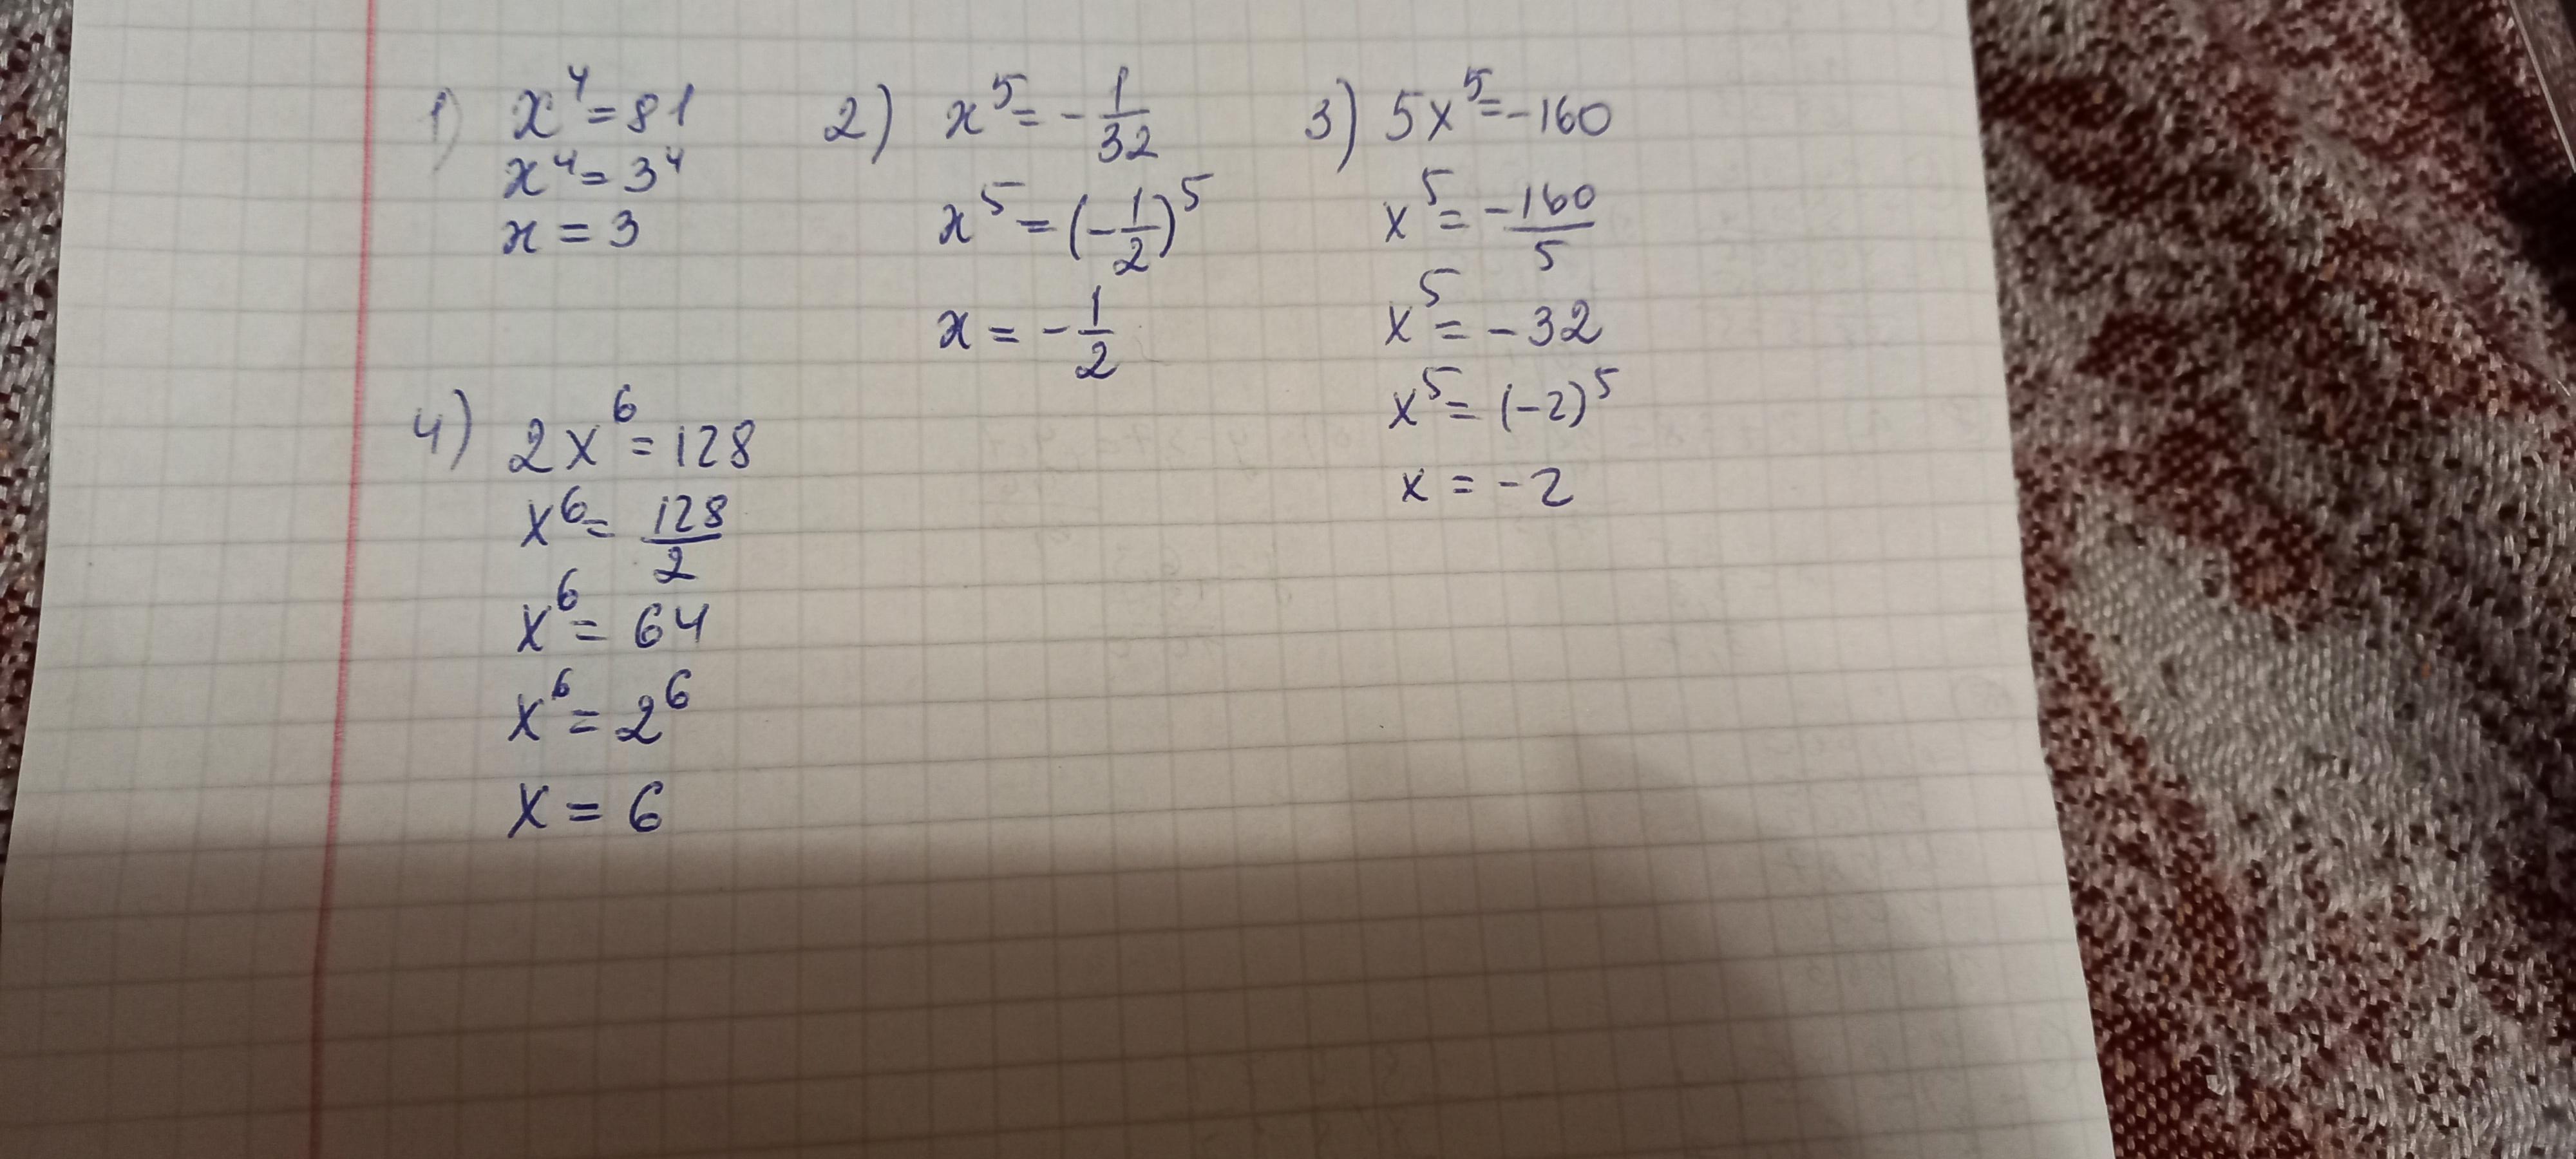 1) x⁴ = 81
x⁴ = 3⁴
x = 3
2) x⁵ = - 1/32
x⁵ = (- 1/2)⁵
x = - 1/2
3) 5x⁵ = -160
x⁵ = -160/5
x⁵ = - 32
x⁵ = (-2)⁵
x = - 2
4) 2x⁶ = 128
x⁶ = 128/2
x⁶ = 64
x⁶ = 2⁶
x = 6